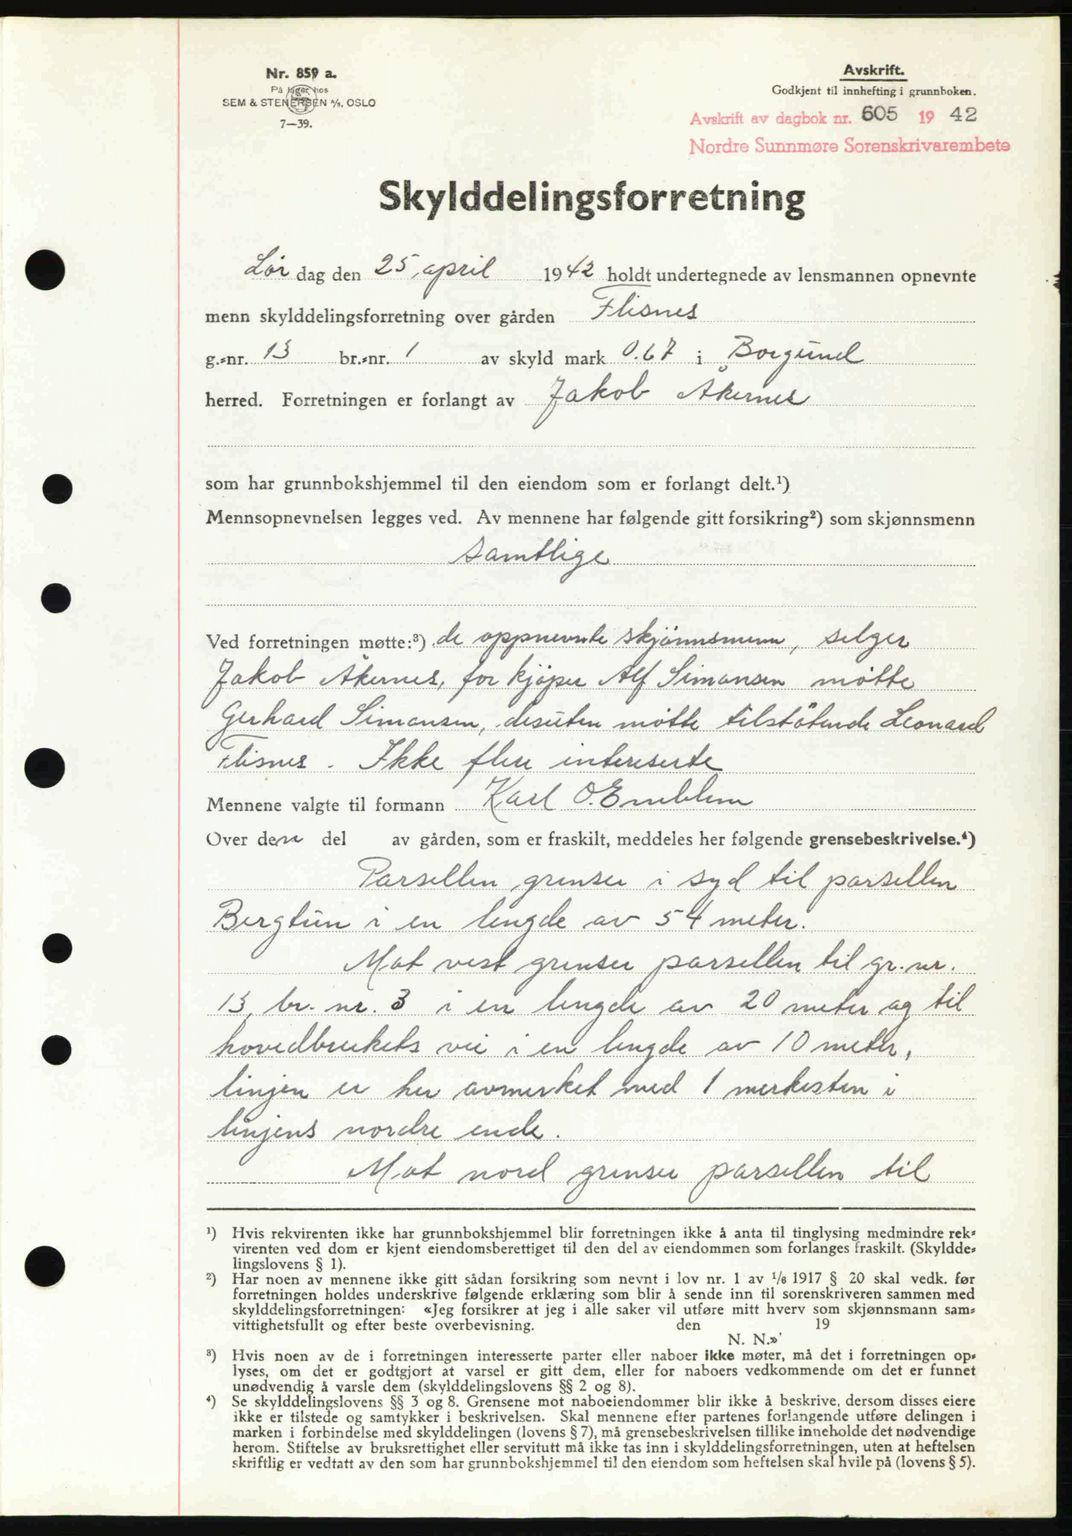 Nr. 859 a.
På lager hos
SEM & STENERSEN A/S, OSLO
7—39.
Avskrift.
Godkjent til innhefting i grunnboken.
Avskrift av dagbok nr. 605 19 42
Nordre Sunnmøre Sorenskrivarembete
Skylddelingsforretning
Lør dag den 25. april 1942 holdt undertegnede av lensmannen opnevnte
menn skylddelingsforretning over gården Flisnes
g.=nr. 13 br.=nr. 1 av skyld mark 0.67 i Borgund
herred. Forretningen er forlangt av Jakob Åkernes
som har grunnbokshjemmel til den eiendom som er forlangt delt.¹)
Mennsopnevnelsen legges ved. Av mennene har følgende gitt forsikring²) som skjønnsmenn
samtlige
Ved forretningen møtte:³) de oppnevnte skjønnsmenn, selger
Jakob Åkernes, for kjøper Alf Simonsen møtte
Gerhard Simonsen, desuten møtte tilstøtende Leonard
Flisnes. Ikke flere intereserte
Mennene valgte til formann Karl O. Emblem
Over denn del av gården, som er fraskilt, meddeles her følgende grensebeskrivelse.⁴)
Parsellen grenser i syd til parsellen
Bergtun i en lengde av 54 meter.
Mot vest grenser parsellen til gr. nr.
13, br. nr. 3 i en lengde av 20 meter og til
hovedbrukets vei i en lengde av 10 meter,
linjen er her avmerket med 1 merkesten i
linjens nordre ende.
Mot nord grenser parsellen til
¹) Hvis rekvirenten ikke har grunnbokshjemmel blir forretningen ikke å anta til tinglysing medmindre rek=
virenten ved dom er kjent eiendomsberettiget til den del av eiendommen som forlanges fraskilt. (Skyldde=
lingslovens § 1).
²) Har noen av mennene ikke gitt sådan forsikring som nevnt i lov nr. 1 av 1/6 1917 § 20 skal vedk. før
forretningen holdes underskrive følgende erklæring som blir å sende inn til sorenskriveren sammen med
skylddelingsforretningen: «Jeg forsikrer at jeg i alle saker vil utføre mitt hverv som skjønnsmann sam=
vittighetsfullt og efter beste overbevisning. den 19
N. N.»
³) Hvis noen av de i forretningen interesserte parter eller naboer ikke møter, må det i forretningen op=
lyses, om det er godtgjort at varsel er gitt dem, eller for naboers vedkommende om det er funnet
unødvendig å varsle dem (skylddelingslovens §§ 2 og 8).
⁴) Se skylddelingslovens §§ 3 og 8. Grensene mot naboeiendommer blir ikke å beskrive, dersom disses eiere
ikke er tilstede og samtykker i beskrivelsen. Skal mennene efter partenes forlangende utføre delingen i
marken i forbindelse med skylddelingen (lovens § 7), må grensebeskrivelsen tillike inneholde det nødvendige
herom. Stiftelse av bruksrettighet eller servitutt må ikke tas inn i skylddelingsforretningen, uten at heftelsen
skriftlig er vedtatt av den som har grunnbokshjemmel til den eiendom som heftelsen skal hvile på (lovens § 5).